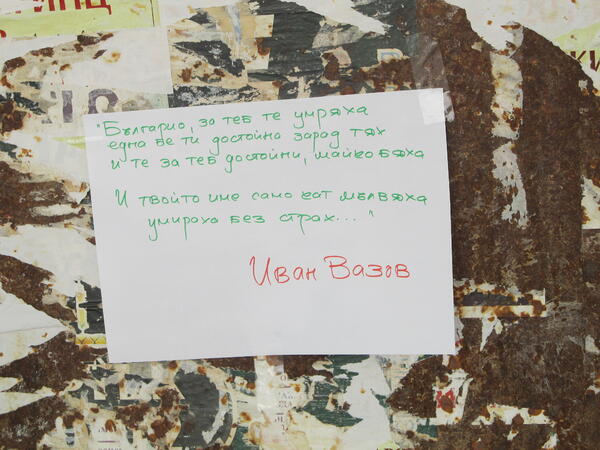 "Българио, за теб те умряха
една бе ти достойна зарад тях
и те за теб достойни, майко бяха
И твойто име само кат мълвяха
умираха без страх..."
Иван Вазов